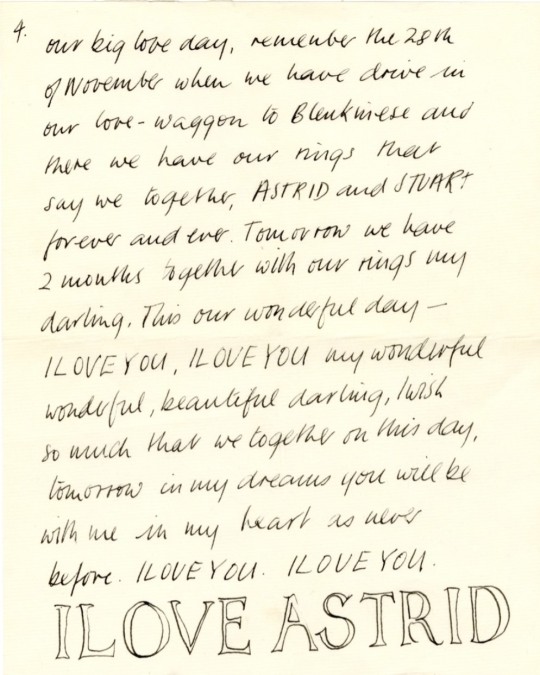 4.
our big love day, remember the 28th
of November when we have drive in
our love-waggon to Blenkinese and
there we have our rings that
say we together, ASTRID and STUART
forever and ever. Tomorrow we have
2 months together with our rings my
darling. This our wonderful day —
I LOVE YOU, I LOVE YOU my wonderful
wonderful, beautiful darling, I wish
so much that we together on this day,
tomorrow in my dreams you will be
with me in my heart as never
before. I LOVE YOU. I LOVE YOU.
I LOVE ASTRID